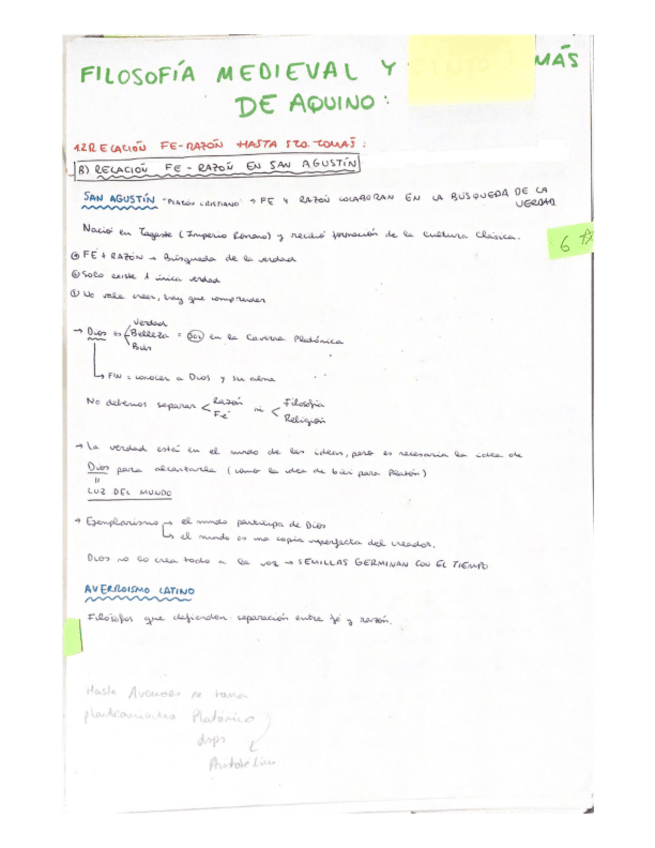 FILOSOFÍA MEDIEVAL Y SANTO TOMÁS
DE AQUINO:
1.2 RELACIÓN FE-RAZÓN HASTA STO. TOMÁS:
B) RELACIÓN FE-RAZÓN EN SAN AGUSTÍN
SAN AGUSTÍN "PLATÓN CRISTIANO" → FE Y RAZÓN COLABORAN EN LA BÚSQUEDA DE LA
VERDAD
Nació en Tagaste (Imperio Romano) y recibió formación de la cultura Clásica.
6
FE + RAZÓN → Búsqueda de la verdad
Solo existe 1 única verdad
No vale creer, hay que comprender
→ Dios es Verdad
Belleza = SOL en la Caverna Platónica
Bien
↳ FIN = conocer a Dios y su alma
No debemos separar < Razón ni < Filosofía
Fé Religión
→ La verdad está en el mundo de las ideas, pero es necesaria la idea de
Dios para alcanzarla (como la idea de bien para Platón)
"
LUZ DEL MUNDO
→ Ejemplarismo → el mundo participa de Dios
↳ el mundo es una copia imperfecta del creador.
Dios no lo crea todo a la vez → SEMILLAS GERMINAN CON EL TIEMPO
AVERROISMO LATINO
Filósofos que defienden separación entre fé y razón.
Hasta Averroes se toma
planteamientos Platónico
dsps
Aristotélico